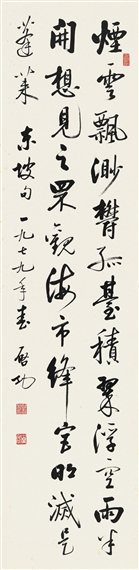 煙雲飄渺鬱孤臺積翠浮空雨半
開想見之罘觀海市絳宮明滅是
蓬萊 東坡句一九七九年春 啟功